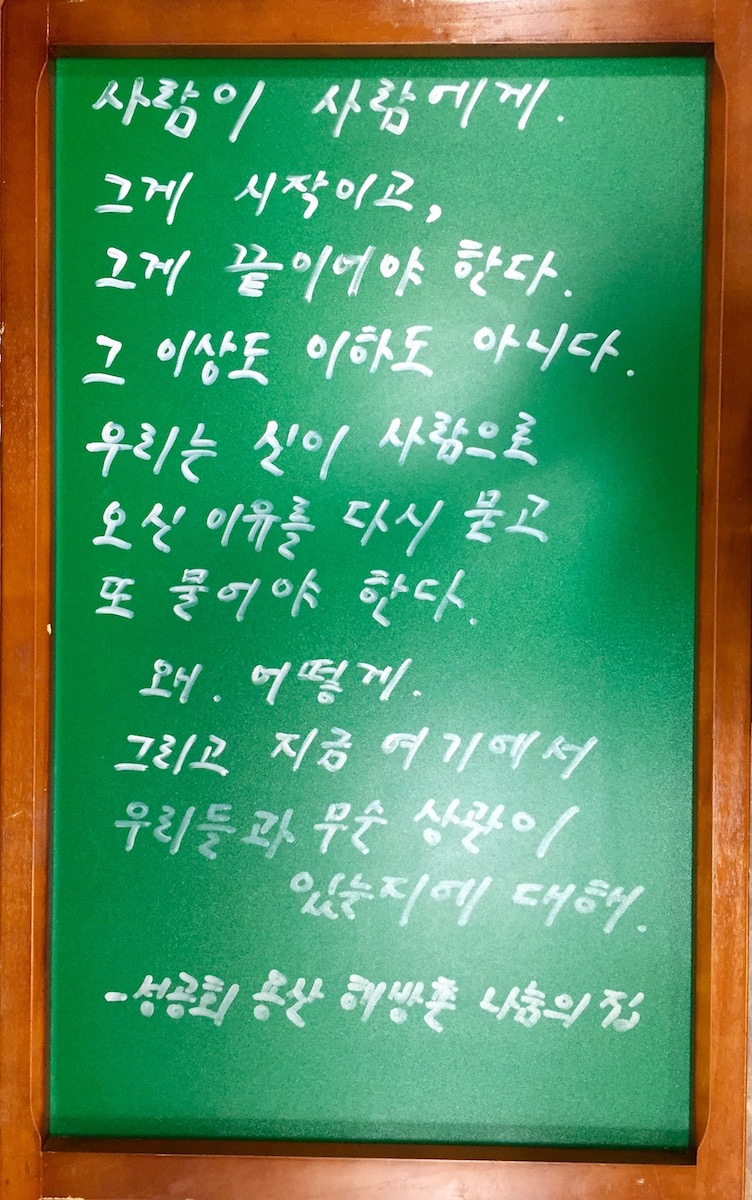 사람이 사람에게.
그게 시작이고,
그게 끝이어야 한다.
그 이상도 이하도 아니다.
우리는 신이 사람으로
오신 이유를 다시 묻고
또 물어야 한다.
왜. 어떻게.
그리고 지금 여기에서
우리들과 무슨 상관이
있는지에 대해.
-성공회 용산 해방촌 나눔의 집